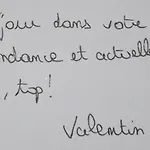 jour dans votre
ndance et actuelle
, top !
Valentin